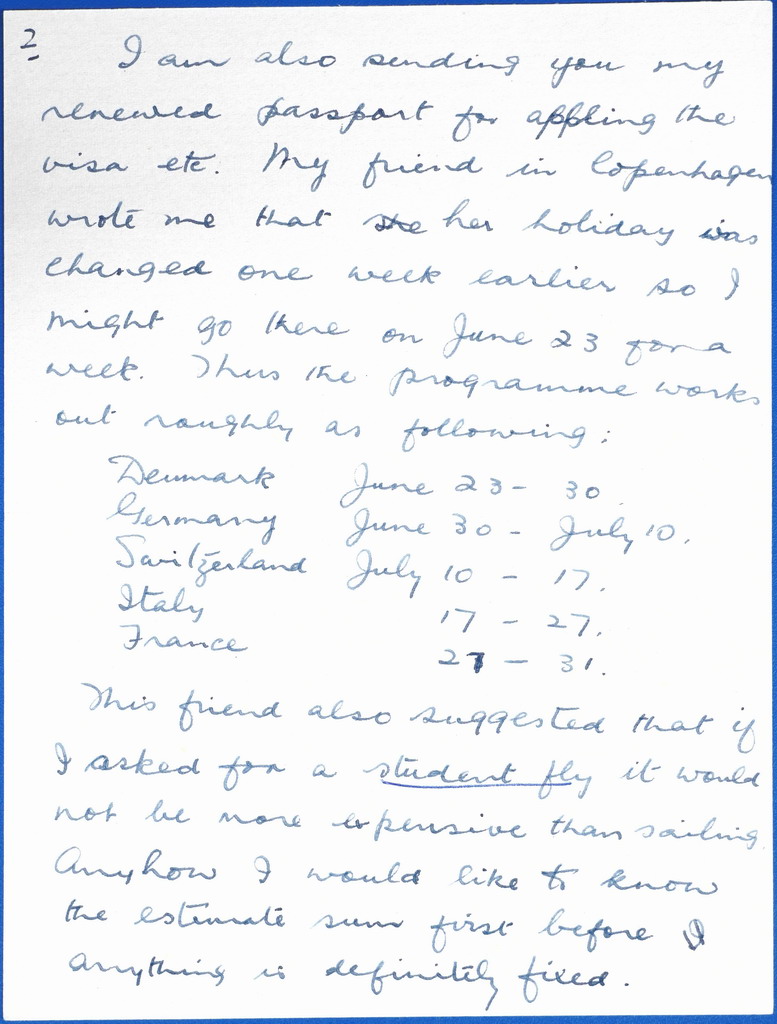 2
I am also sending you my
renewed passport for appling the
visa etc. My friend in Copenhagen
wrote me that she her holiday was
changed one week earlier so I
might go there on June 23 for a
week. Thus the programme works
out roughly as following:
Denmark June 23 - 30.
Germany June 30 - July 10.
Switzerland July 10 - 17.
Italy 17 - 27.
France 27 - 31.
This friend also suggested that if
I asked for a student fly it would
not be more expensive than sailing.
Anyhow I would like to know
the estimate sum first before I
anything is definitely fixed.